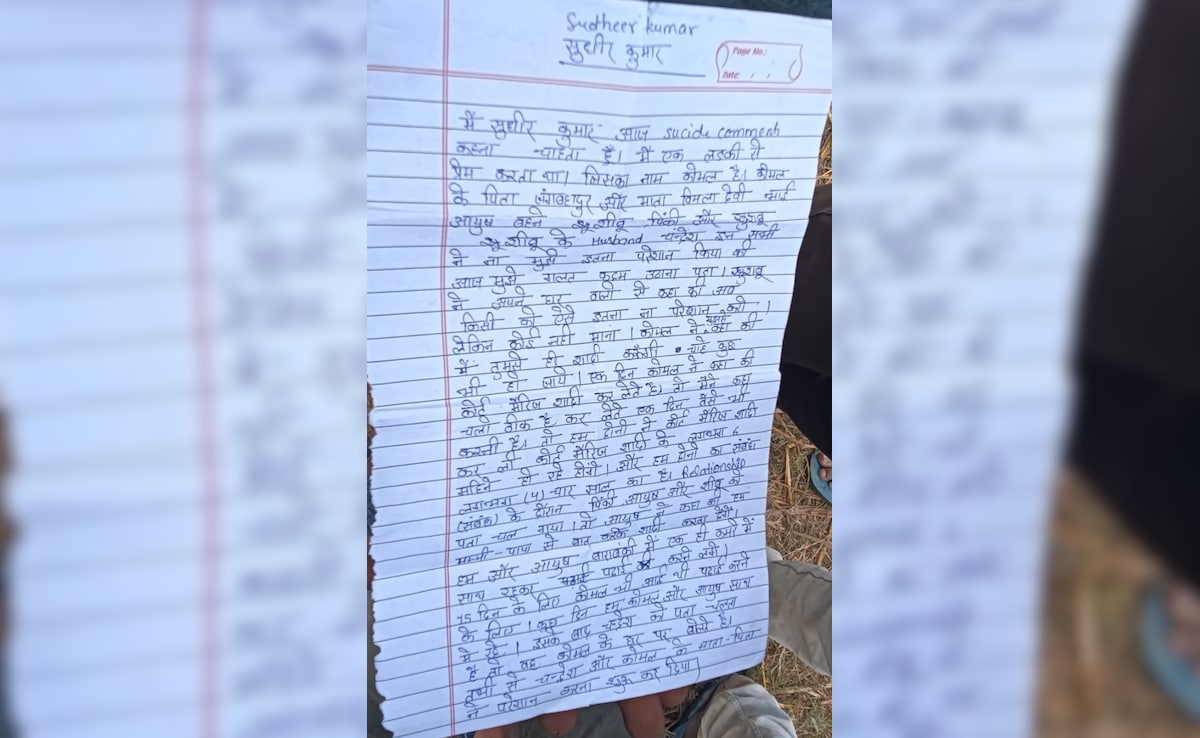 Sudheer kumar
सुधीर कुमार
Page No.:
Date:
में सुधीर कुमार आज sucide comment
कहना चाहता हूँ। में एक लडकी से
प्रेम करता था। जिसका नाम कोमल है। कोमल
के पिता जंगबहादुर और माता विमला देवी भाई
आयुष बहने शीबू पिंकी और खुशबू
शीबू के Husband चन्द्रेश इन सभी
ने ना मुझे इतना परेशान किया की
आज मुझे गलत कदम उठाना पडा। खुशबू
ने अपने घर वालो से कहा की अब
किसी को ऐसे इतना ना परेशान करो।
लेकिन कोई नही माना। कोमल ने मुझसे कहा की
में तुमसे ही शादी करूंगी चाहे कुछ
भी हो जाये। एक दिन कोमल ने कहा की
कोर्ट मैरिज शादी कर लेते है। तो मैने कहा
चलो ठीक है कर लेते एक दिन वैसे भी
करनी है। तो हम दोनो ने कोर्ट मैरिज शादी
कर ली कोर्ट मैरिज शादी के लगभग 6
महिने हो रहे होंगे। और हम दोनो का संबंध
लगभग (4) चार साल का है। Relationship
(संबंध) के दौरान पिंकी आयुष और शीबू को
पता चल गया। तो आयुष ने कहा की हम
मम्मी-पापा से बात करके शादी करवा देंगे।
हम और आयुष बाराबंकी में एक ही कमरे में
साथ रहकर पढाई करने लगे।
15 दिन के लिए कोमल भी आई थी पढाई करने
के लिए। कुछ दिन हम कोमल और आयुष साथ
मे रहे। इसके बाद चन्द्रेश को पता चलता
है तो वह कोमल के घर पर बोले है।
तभी से चन्द्रेश और कोमल के माता-पिता
ने परेशान करना शुरू कर दिया।